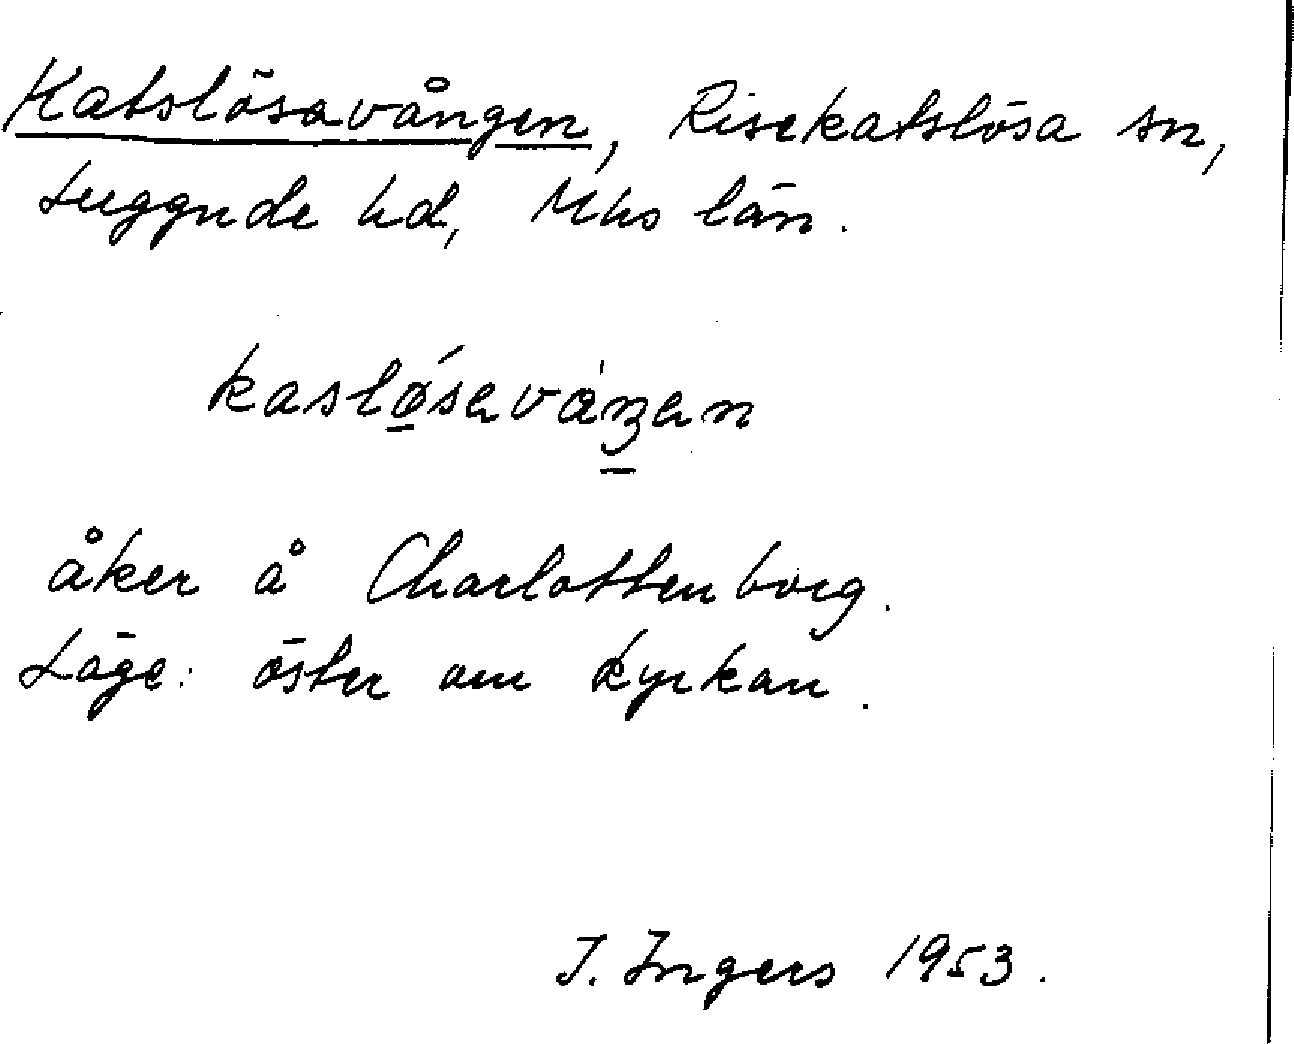 Katslösavången, Risekatslösa sn,
Luggude hd, Mhs län.
kasløsavaŋen
åker å Charlottenborg.
Läge: öster om kyrkan.
I. Ingers 1953.